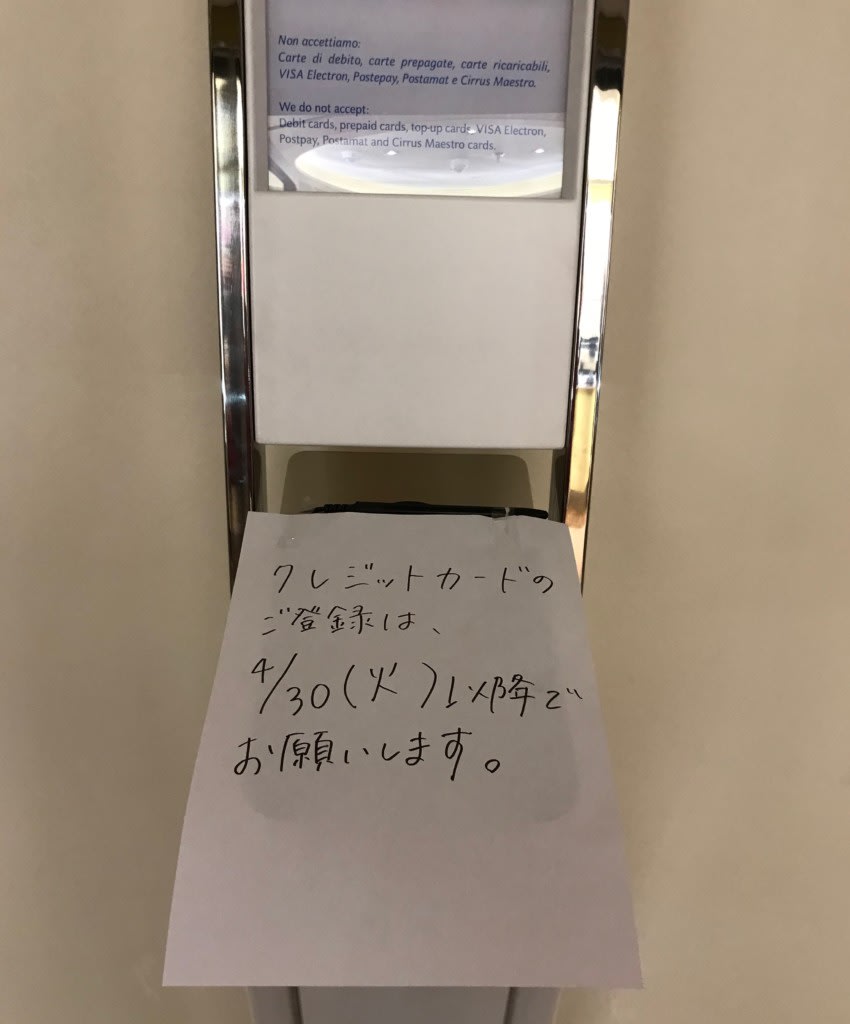 Non accettiamo:
Carte di debito, carte prepagate, carte ricaricabili,
VISA Electron, Postepay, Postamat e Cirrus Maestro.
We do not accept:
Debit cards, prepaid cards, top-up cards, VISA Electron,
Postpay, Postamat and Cirrus Maestro cards.
クレジットカードの
ご登録は、
4/30(火)以降で
お願いします。